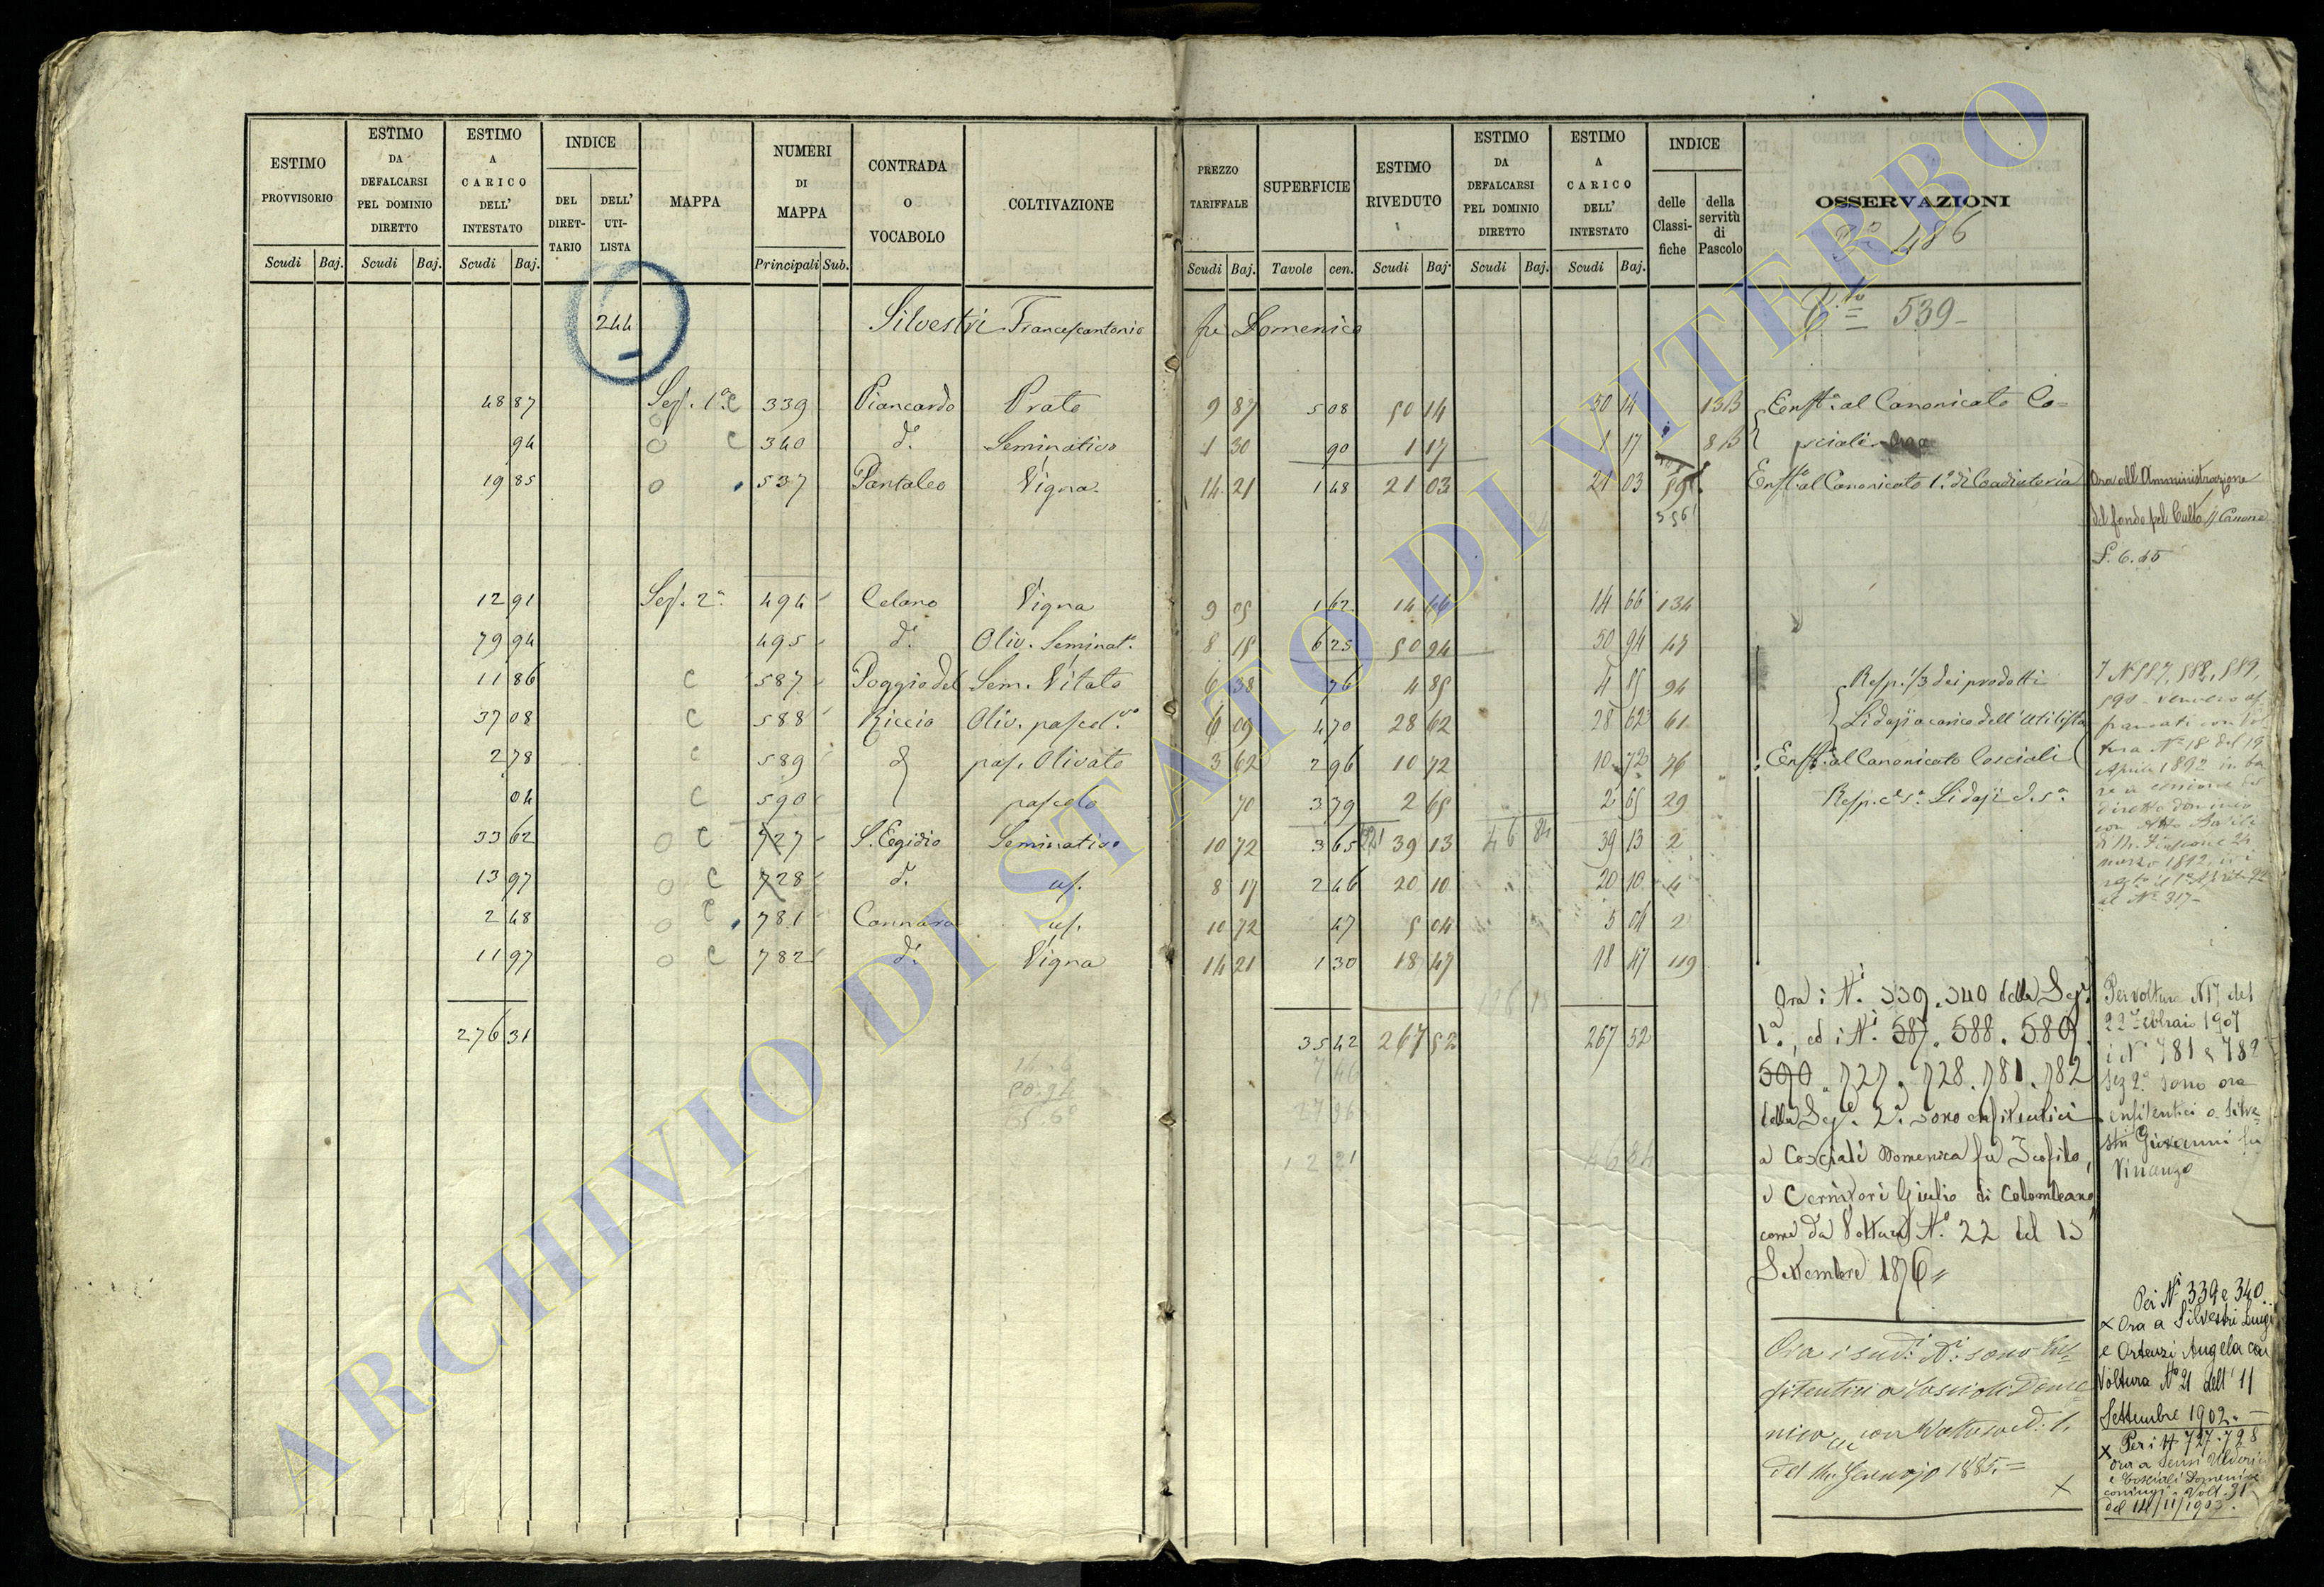 ESTIMO PROVVISORIO | ESTIMO DA DEFALCARSI PEL DOMINIO DIRETTO | ESTIMO A CARICO DELL' INTESTATO | INDICE DEL DIRET- TARIO | DELL' UTI- LISTA | MAPPA | NUMERI DI MAPPA | CONTRADA O VOCABOLO | COLTIVAZIONE | PREZZO TARIFFALE | SUPERFICIE | ESTIMO RIVEDUTO | ESTIMO DA DEFALCARSI PEL DOMINIO DIRETTO | ESTIMO A CARICO DELL' INTESTATO | INDICE delle Classi- fiche | della servitù di Pascolo | OSSERVAZIONI
Scudi Baj. Scudi Baj. Scudi Baj. Principali Sub. Scudi Baj. Tavole cen. Scudi Baj. Scudi Baj. Scudi Baj.
486
244 Silvestri Francescantonio fu Domenico 539
48 87 Sez. 1a C 339 Piancardo Prato 9 87 5 08 50 14 50 14 13 B Enfta. al Canonicato Co=
94 C 340 do. Seminativo 1 30 90 1 17 1 17 8 B sciali
19 85 537 Pantaleo Vigna 14 21 1 48 21 03 21 03 Enfta al Canonicato 1o. di Coadiutoria Ora all'Amministrazione
del fondo pel Culto Canone
L. 6.45
12 91 Sez. 2a 494 Celano Vigna 9 05 1 62 14 66 14 66 134
79 94 495 do. Oliv. Seminato. 8 15 6 25 50 94 50 94 47
11 86 C 587 Poggio del Sem. Vitato 6 38 76 4 85 4 85 94 Risp. 1/3 dei prodotti
37 08 C 588 Riccio Oliv. pascol.vo 6 09 4 70 28 62 28 62 61 Li dazi a carico dell'Utilista
2 78 C 589 pas. Olivato 3 62 2 96 10 72 10 72 76 Enfta. al Canonicato Cosciali
04 C 590 pascolo 70 3 79 2 65 2 65 29
33 62 C 727 S. Egidio Seminativo 10 72 3 65 39 13 46 84 39 13 2
13 97 C 728 do. us. 8 17 2 46 20 10 20 10 4
2 48 C 781 Cannara us. 10 72 47 5 04 5 04 2
11 97 C 782 do. Vigna 14 21 1 30 18 47 18 47 119
276 31 35 42 267 52 267 52
7 46
27 96
12 21 46 84
I N 587, 588, 589,
590
tura No 18 del 19
Aprile 1892
diretto dominio
al No 317
Ora i Ni. 339. 340 della Sez.
1a., ed i Ni. 587. 588. 589.
590. 727. 728. 781. 782
della Sez. 2a. sono enfiteutici
a Cosciali Domenica fu Teofilo,
e Cernitori Giulio di Colombano,
come da Voltura No. 22 del 15
Settembre 1876
Ora i sud.i Ni. sono En=
fiteutici a Coscioli Dome=
nica con Voltura
del Gennajo 1885. =
Per voltura N 17 del
22 Febbraio 1907
i N 781 e 782
Sez 2a. sono ora
enfiteutici a Silve=
stri Giovanni fu
Vinanzo
Pei Ni 339 e 340
Ora a Silvestri Luigi
e Ortenzi Angela con
Voltura No 21 dell' 11
Settembre 1902.
Per i N. 727. 728
ora a
e Cosciali Domenica
coniugi Volt. 31
del 14/11/1903.
ARCHIVIO DI STATO DI VITERBO